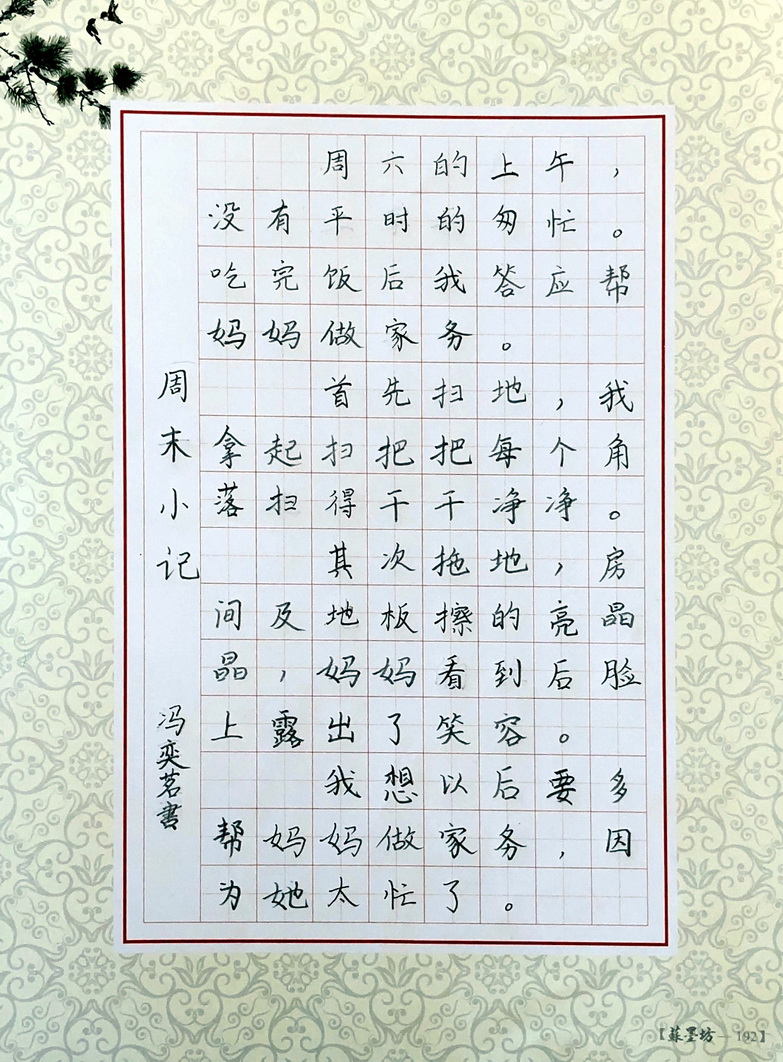 周末小记
周六的上午，
没有平时的匆忙。
吃完饭后我答应帮
妈妈做家务。
首先扫地，我
拿起扫把把每个角
落扫得干干净净。
其次拖地，房
间及地板擦的亮晶
晶，妈妈看到后脸
上露出了笑容。
我想以后要多
帮妈妈做家务，因
为她太忙了。
冯奕茗書
【蘇墨坊—192】